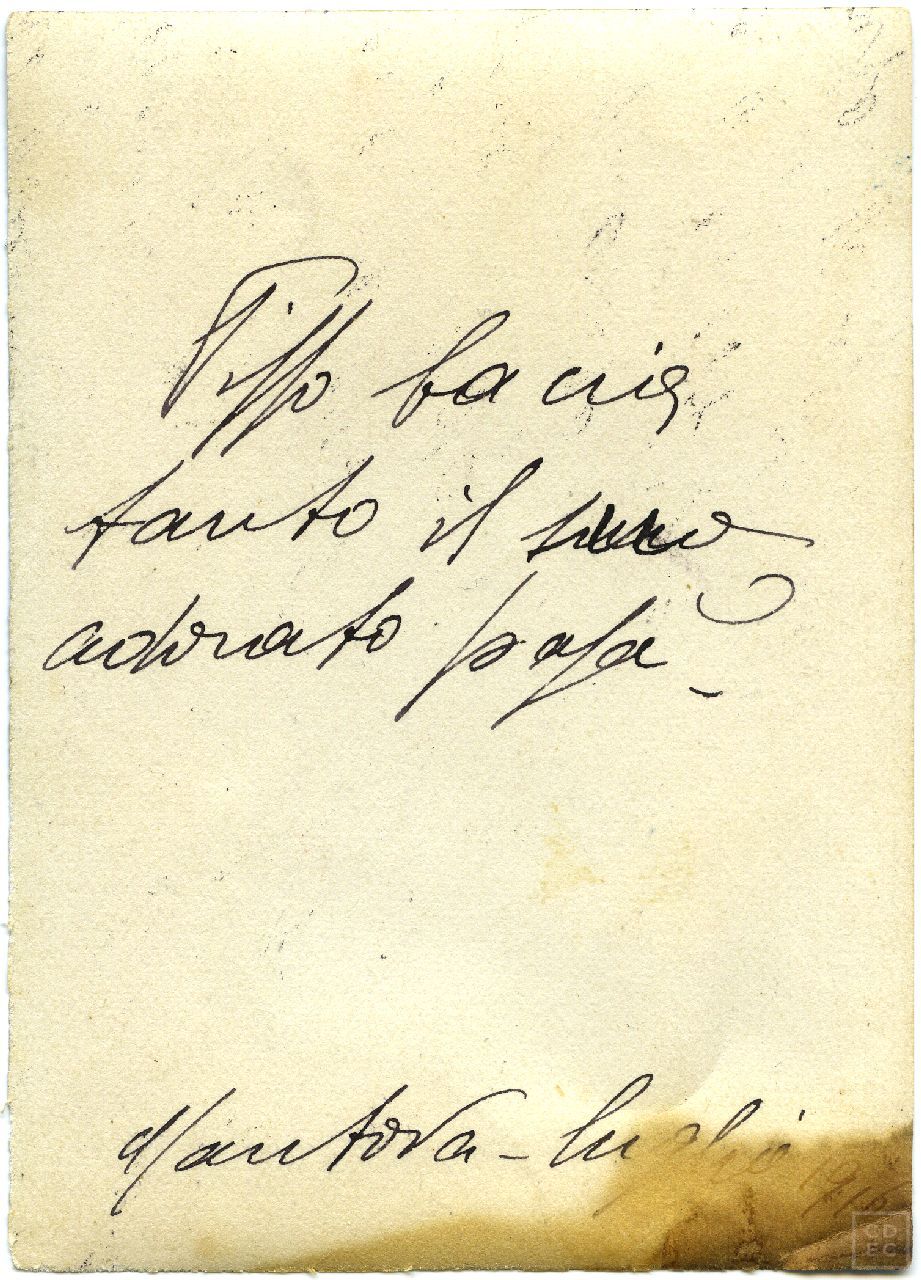 Pippo bacia
tanto il suo
adorato papà
Mantova - luglio
CDEC